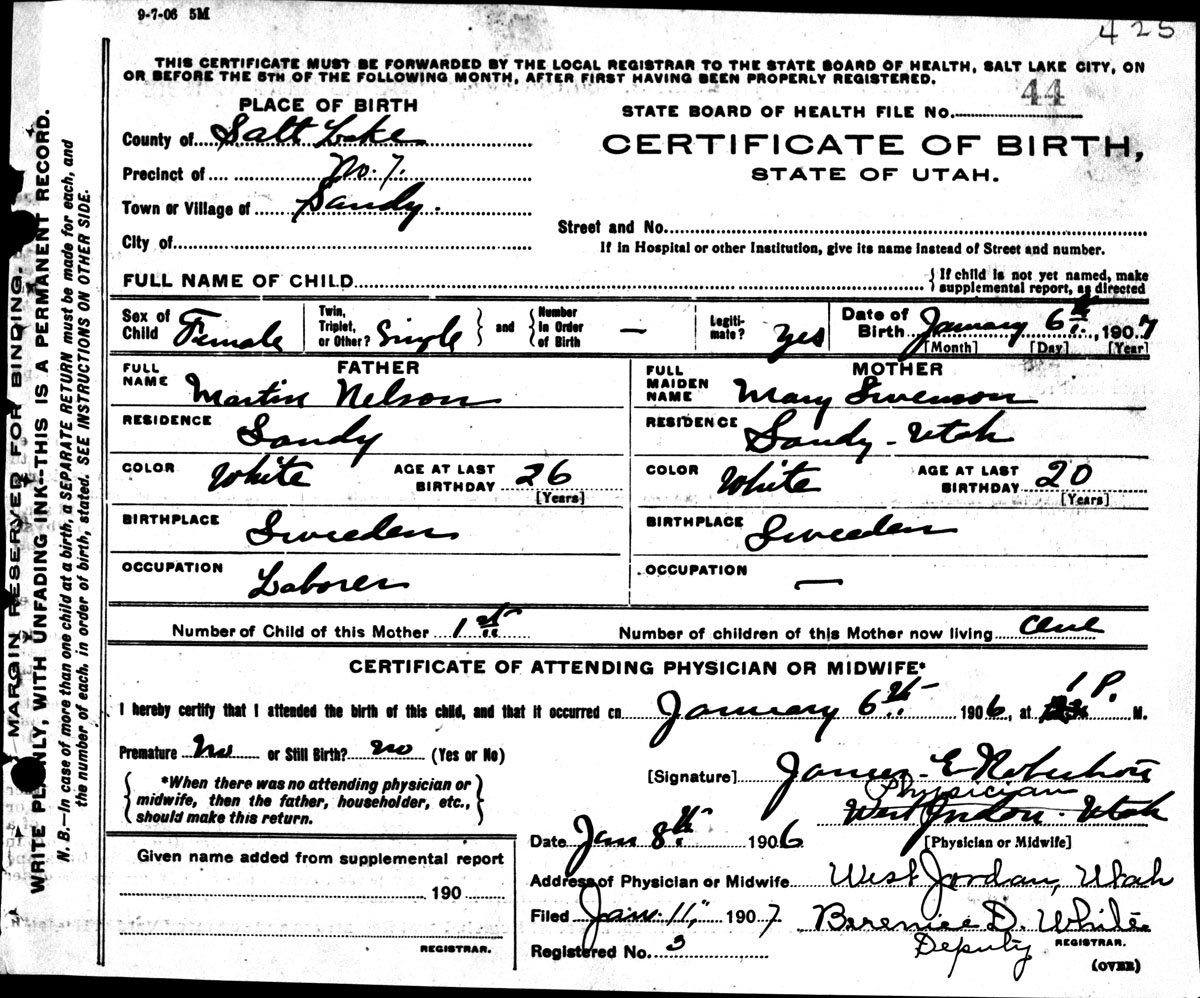 9-7-06 5M
425
THIS CERTIFICATE MUST BE FORWARDED BY THE LOCAL REGISTRAR TO THE STATE BOARD OF HEALTH, SALT LAKE CITY, ON
OR BEFORE THE 5TH OF THE FOLLOWING MONTH, AFTER FIRST HAVING BEEN PROPERLY REGISTERED.
MARGIN RESERVED FOR BINDING.
WRITE PLAINLY, WITH UNFADING INK--THIS IS A PERMANENT RECORD.
N. B.—In case of more than one child at a birth, a SEPARATE RETURN must be made for each, and
the number of each, in order of birth, stated. SEE INSTRUCTIONS ON OTHER SIDE.
PLACE OF BIRTH
County of Salt Lake
Precinct of No. 7.
Town or Village of Sandy.
City of
STATE BOARD OF HEALTH FILE NO. 44
CERTIFICATE OF BIRTH,
STATE OF UTAH.
Street and No.
If in Hospital or other Institution, give its name instead of Street and number.
FULL NAME OF CHILD
{ If child is not yet named, make
supplemental report, as directed
Sex of Child Female
Twin, Triplet, or Other? Single } and { Number in Order of Birth —
Legitimate? Yes
Date of Birth January 6th, 1907
[Month] [Day] [Year]
FATHER
FULL NAME Martin Nelson
RESIDENCE Sandy
COLOR White AGE AT LAST BIRTHDAY 26
[Years]
BIRTHPLACE Sweeden
OCCUPATION Laborer
MOTHER
FULL MAIDEN NAME Mary Swenson
RESIDENCE Sandy - Utah
COLOR White AGE AT LAST BIRTHDAY 20
[Years]
BIRTHPLACE Sweeden
OCCUPATION —
Number of Child of this Mother 1st
Number of children of this Mother now living one
CERTIFICATE OF ATTENDING PHYSICIAN OR MIDWIFE*
I hereby certify that I attended the birth of this child, and that it occurred on January 6th 1906, at 1 P. M.
Premature No or Still Birth? no (Yes or No)
{ *When there was no attending physician or
midwife, then the father, householder, etc.,
should make this return. }
[Signature] James E Robertson
Physician
West Jordon - Utah
Date Jan 8th 1906
[Physician or Midwife]
Address of Physician or Midwife West Jordan, Utah
Filed Jan. 11, 1907 Berenice D. White
Deputy REGISTRAR.
Registered No. 3
(OVER)
Given name added from supplemental report
190
REGISTRAR.